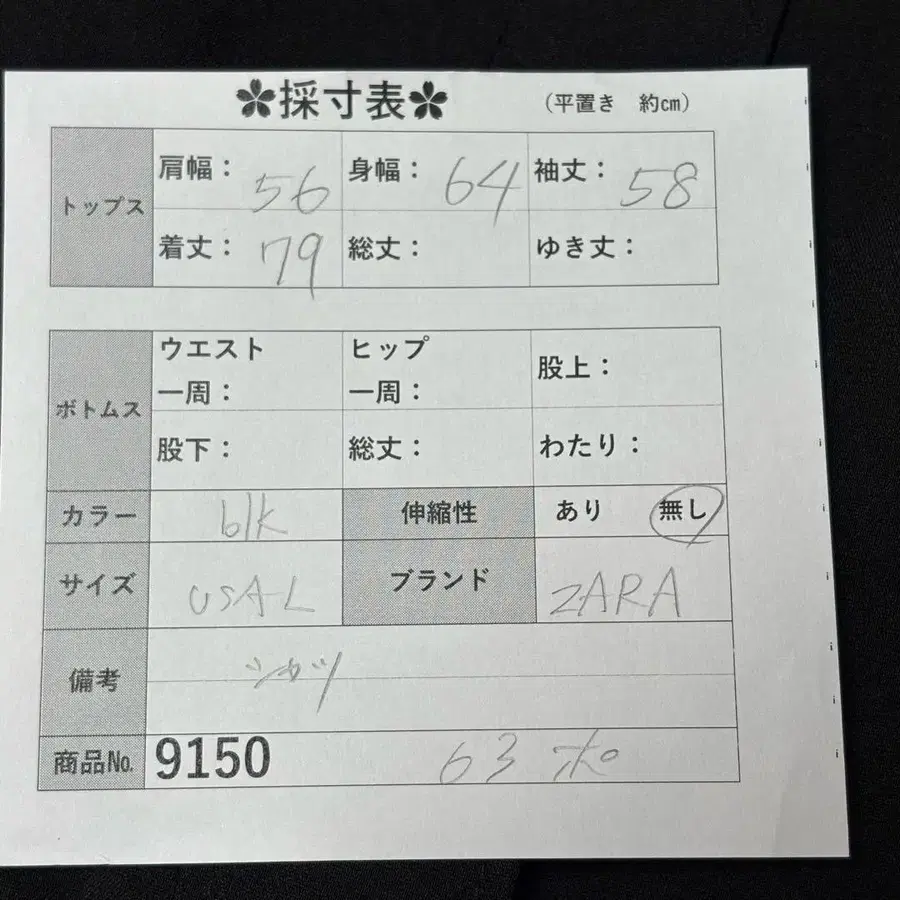 ✽採寸表✽ (平置き 約㎝)
トップス 肩幅: 56 身幅: 64 袖丈: 58
着丈: 79 総丈: ゆき丈:
ボトムス ウエスト一周: ヒップ一周: 股上:
股下: 総丈: わたり:
カラー blk 伸縮性 あり 無し
サイズ USA-L ブランド ZARA
備考 シャツ
商品No. 9150 63 ポ